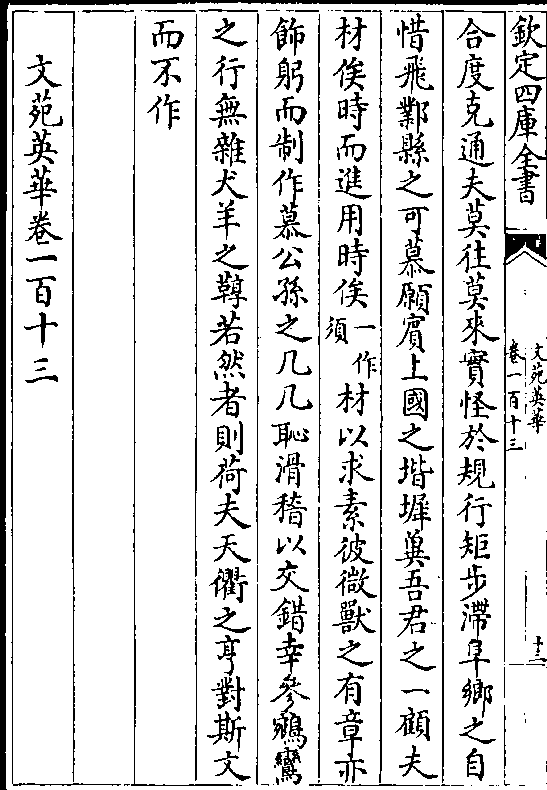 欽定四庫全書
文苑英華
卷一百十三
十三
合度克通夫莫往莫來實怪於規行矩步滯阜鄉之自
惜飛鄴縣之可慕願賓上國之堦墀兾吾君之一顧夫
材俟時而進用時俟一作須材以求素彼微獸之有章亦
飾躬而制作慕公孫之几几恥滑稽以交錯幸參鵷鸞
之行無雜犬羊之鞟若然者則荷夫天衢之亨對斯文
而不作
文苑英華卷一百十三